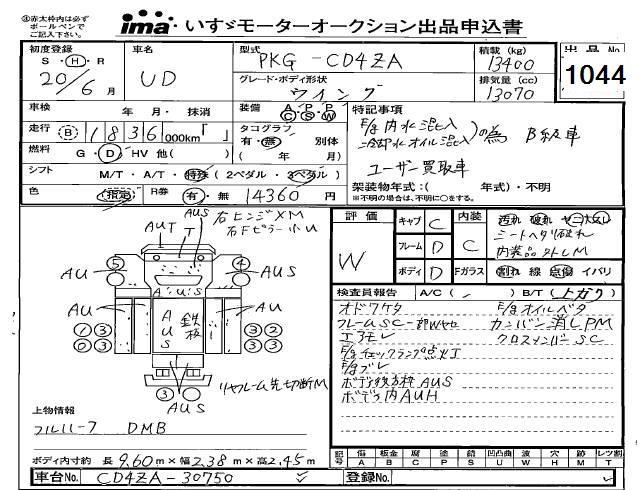 ④赤太枠内は必ず
ボールペンで
ご記入下さい。
ima いすゞモーターオークション出品申込書
初度登録 車名 型式 積載 (kg) 出品No
S・H・R PKG-CD4ZA 13400
20/6月 UD グレード・ボディ形状 排気量 (cc) 1044
ウイング 13070
車検 年 月・抹消 装備 A/C P/S P/W 特記事項
走行 B 1836 000km「 」 タコグラフ
有・無 別体
E/g内水混入
冷却水オイル混入 )の為 B級車
燃料 G・D・HV 他( ) ( 年 月) ユーザー買取車
シフト M/T・A/T・特殊 (2ペダル・3ペダル) 架装物年式:( 年式)・不明
色 (指定) R券 有・無 14360 円 ※不明の場合は、不明に○をする。
評価 W キャブ C 内装 C
フレーム D
ボディ D Fガラス 割れ 線 点傷 イバリ
シートヘタリ破れ
内装品外しM
検査員報告 A/C( ) B/T(上ガリ)
オドワケタ E/gオイルベタ
フレームSC一部Wヤロ カンバン消しPM
エアモレ クロスメンバーSC
E/gチェックランプ点灯
E/gブレ
ボデー残方枠AUS
ボデー内AUH
右ヒンジXM
右Fピラー小U
AUS
AUT T
⑤ AU ④ AUS
A:U:S
AU AUS 鉄板 AUS
① ③ ③ ②
⓪ ③ ③ ②
③ リヤフレーム先切断M
AUS
上物情報
フルハーフ DMB
ボディ内寸約 長9.60m×幅2.38m×高2.45m
記号 傷 A 板金 B 腐 C 塗 P 錆 S 凹凸曲 U 波 W 穴 H 跡 M レツ割 T
車台No. CD4ZA-30750 登録No.